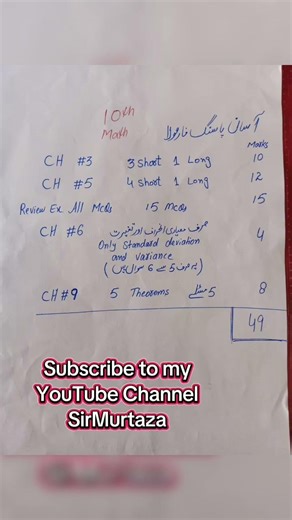 10th
Math
آسان پاسنگ فارمولا
Marks
CH #3 3 Short 1 Long 10
CH #5 4 Short 1 Long 12
Review Ex. All McQs 15 McQs 15
CH #6 صرف معیاری انحراف اور تغیریت 4
Only standard deviation
and variance
(یہ صرف 5 سے 6 سوال ہیں)
CH #9 5 Theorems 5 مسئلے 8
49
Subscribe to my
YouTube Channel
SirMurtaza